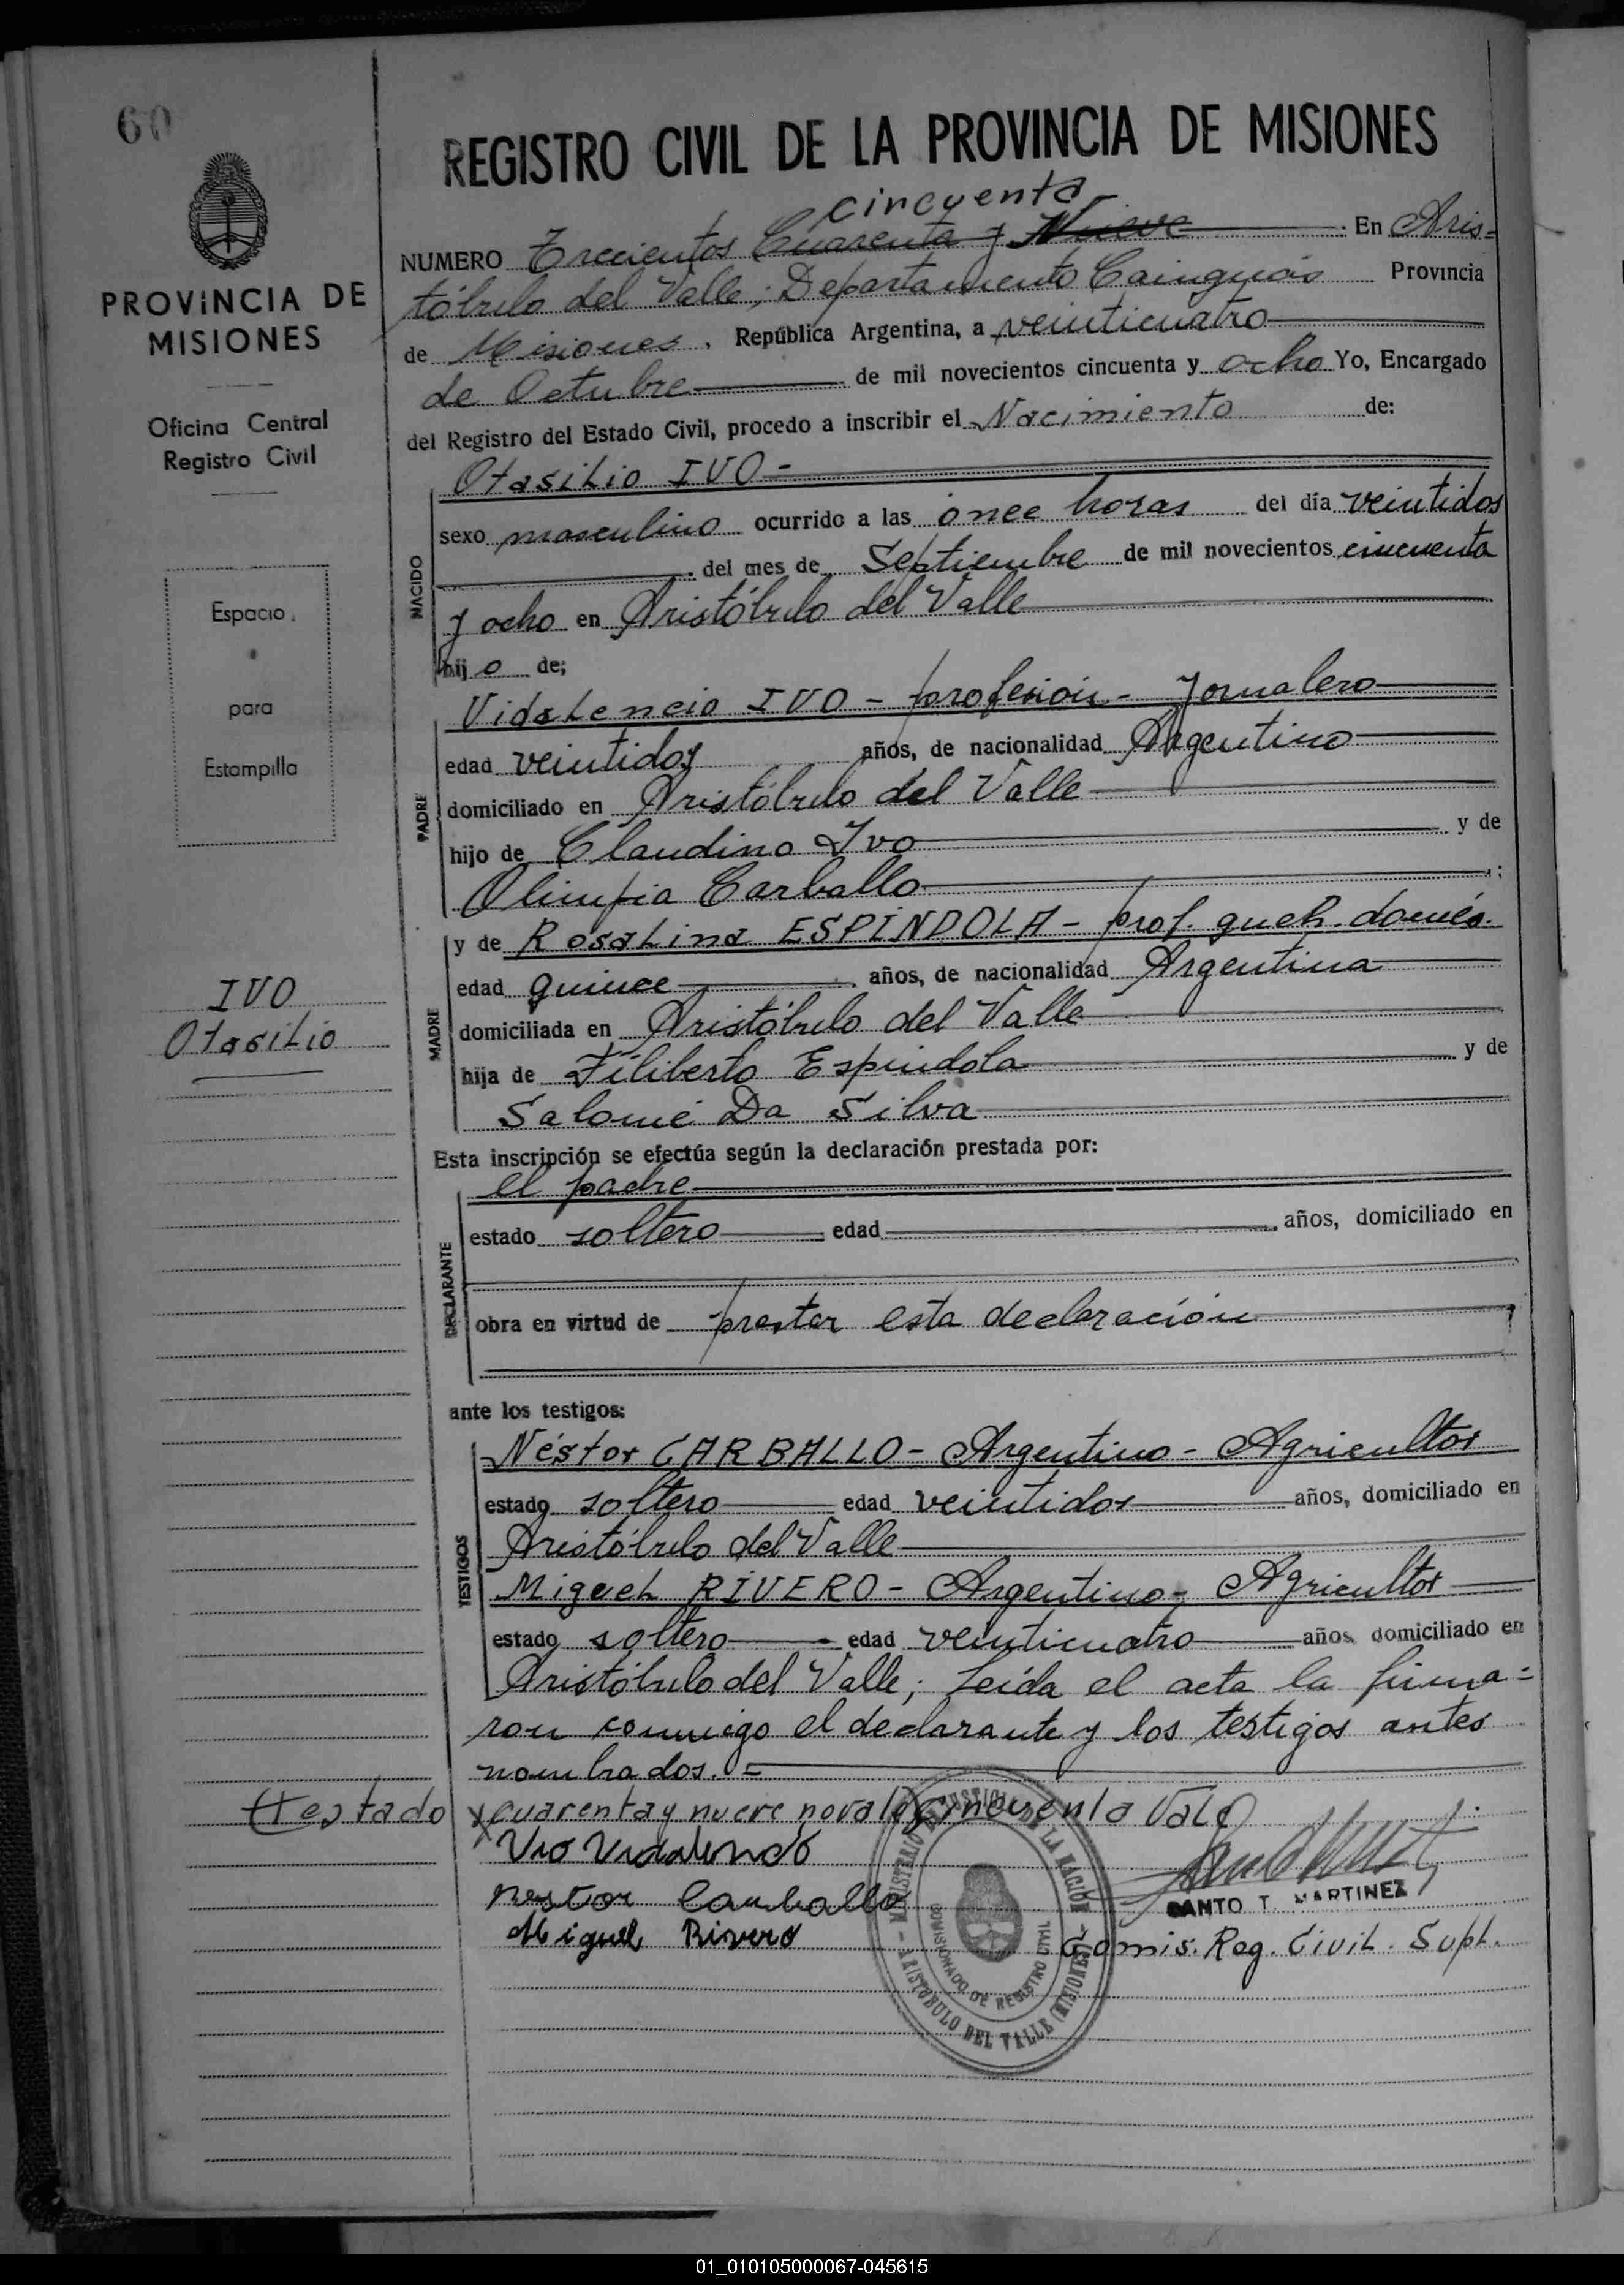 60
PROVINCIA DE
MISIONES
Oficina Central
Registro Civil
Espacio
para
Estampilla
IVO
Otasilio
REGISTRO CIVIL DE LA PROVINCIA DE MISIONES
cincuenta
NUMERO Trecientos Cuarenta y Nueve En Aris=
tóbulo del Valle; Departamento Cainguás Provincia
de Misiones, República Argentina, a veinticuatro
de Octubre de mil novecientos cincuenta y ocho Yo, Encargado
del Registro del Estado Civil, procedo a inscribir el Nacimiento de:
NACIDO
Otasilio IVO =
sexo masculino ocurrido a las once horas del día veintidos
del mes de Septiembre de mil novecientos cincuenta
y ocho en Aristóbulo del Valle
hijo de;
PADRE
Vidalencio IVO - profesión - Jornalero
edad veintidos años, de nacionalidad Argentino
domiciliado en Aristóbulo del Valle
hijo de Claudino Ivo y de
Olimpia Carballo ;
MADRE
y de Rosalina ESPÍNDOLA - prof. queh. domés.
edad quince años, de nacionalidad Argentina
domiciliada en Aristóbulo del Valle
hija de Filiberto Espíndola y de
Salomé Da Silva
Esta inscripción se efectúa según la declaración prestada por:
DECLARANTE
el padre
estado soltero edad años, domiciliado en
obra en virtud de prestar esta declaración ;
ante los testigos:
TESTIGOS
Néstor CARBALLO - Argentino - Agricultor
estado soltero edad veintidos años, domiciliado en
Aristóbulo del Valle
Miguel RIVERO - Argentino - Agricultor
estado soltero edad veinticuatro años, domiciliado en
Aristóbulo del Valle; Leída el acta la firma=
ron conmigo el declarante y los testigos antes
nombrados. =
Testado cuarenta y nueve no vale cincuenta Vale
Ivo Vidalencio
Nestor Carballo
Miguel Rivero
SANTO T. MARTINEZ
Comis. Reg. Civil. Supl.
MINISTERIO DE JUSTICIA DE LA NACION
COMISIONADO DE REGISTRO CIVIL
- ARISTOBULO DEL VALLE (MISIONES) -
01_010105000067-045615